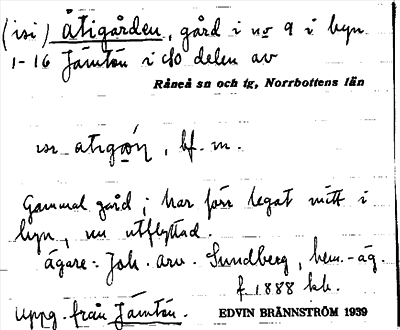 (isi) åtigården, gård i no 9 i byn
1-16 Jämtön i c/o delen av
Råneå sn och tg, Norrbottens län
isi atigɷń, bf. m.
Gammal gård; har förr legat mitt i
byn, nu utflyttad.
ägare: Joh. arv. Sundberg, hem.-äg.
f. 1888 kh.
uppg. från Jämtön.
EDVIN BRÄNNSTRÖM 1939